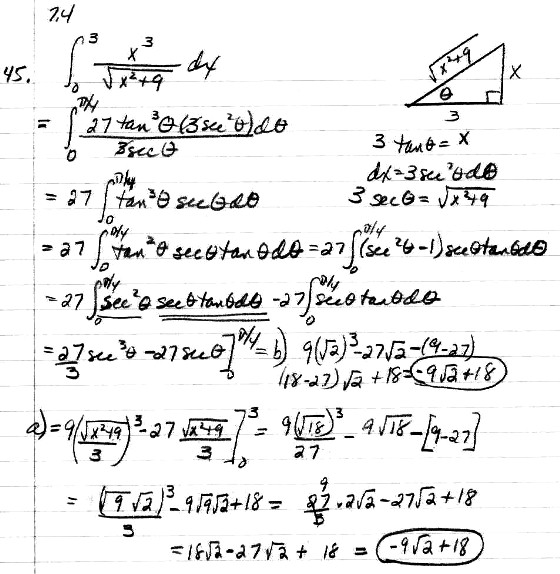 7.4
45. ∫₀³ x³/√(x²+9) dx
√(x²+9) x θ 3
= ∫₀^(π/4) 27 tan³θ (3 sec²θ) dθ / 3 sec θ
3 tan θ = x
dx = 3 sec²θ dθ
= 27 ∫₀^(π/4) tan³θ sec θ dθ
3 sec θ = √(x²+9)
= 27 ∫₀^(π/4) tan²θ sec θ tan θ dθ = 27 ∫₀^(π/4) (sec²θ - 1) sec θ tan θ dθ
= 27 ∫₀^(π/4) sec²θ sec θ tan θ dθ - 27 ∫₀^(π/4) sec θ tan θ dθ
= 27/3 sec³θ - 27 sec θ ]₀^(π/4) = b) 9(√2)³ - 27√2 - (9-27)
(18-27)√2 + 18 = -9√2 + 18
a) = 9(√(x²+9)/3)³ - 27 √(x²+9)/3 ]₀³ = 9(√18)³/27 - 9√18 - [9-27]
= (√9 √2)³/3 - 9√9√2 + 18 = 27/3 · 2√2 - 27√2 + 18
9
= 18√2 - 27√2 + 18 = -9√2 + 18